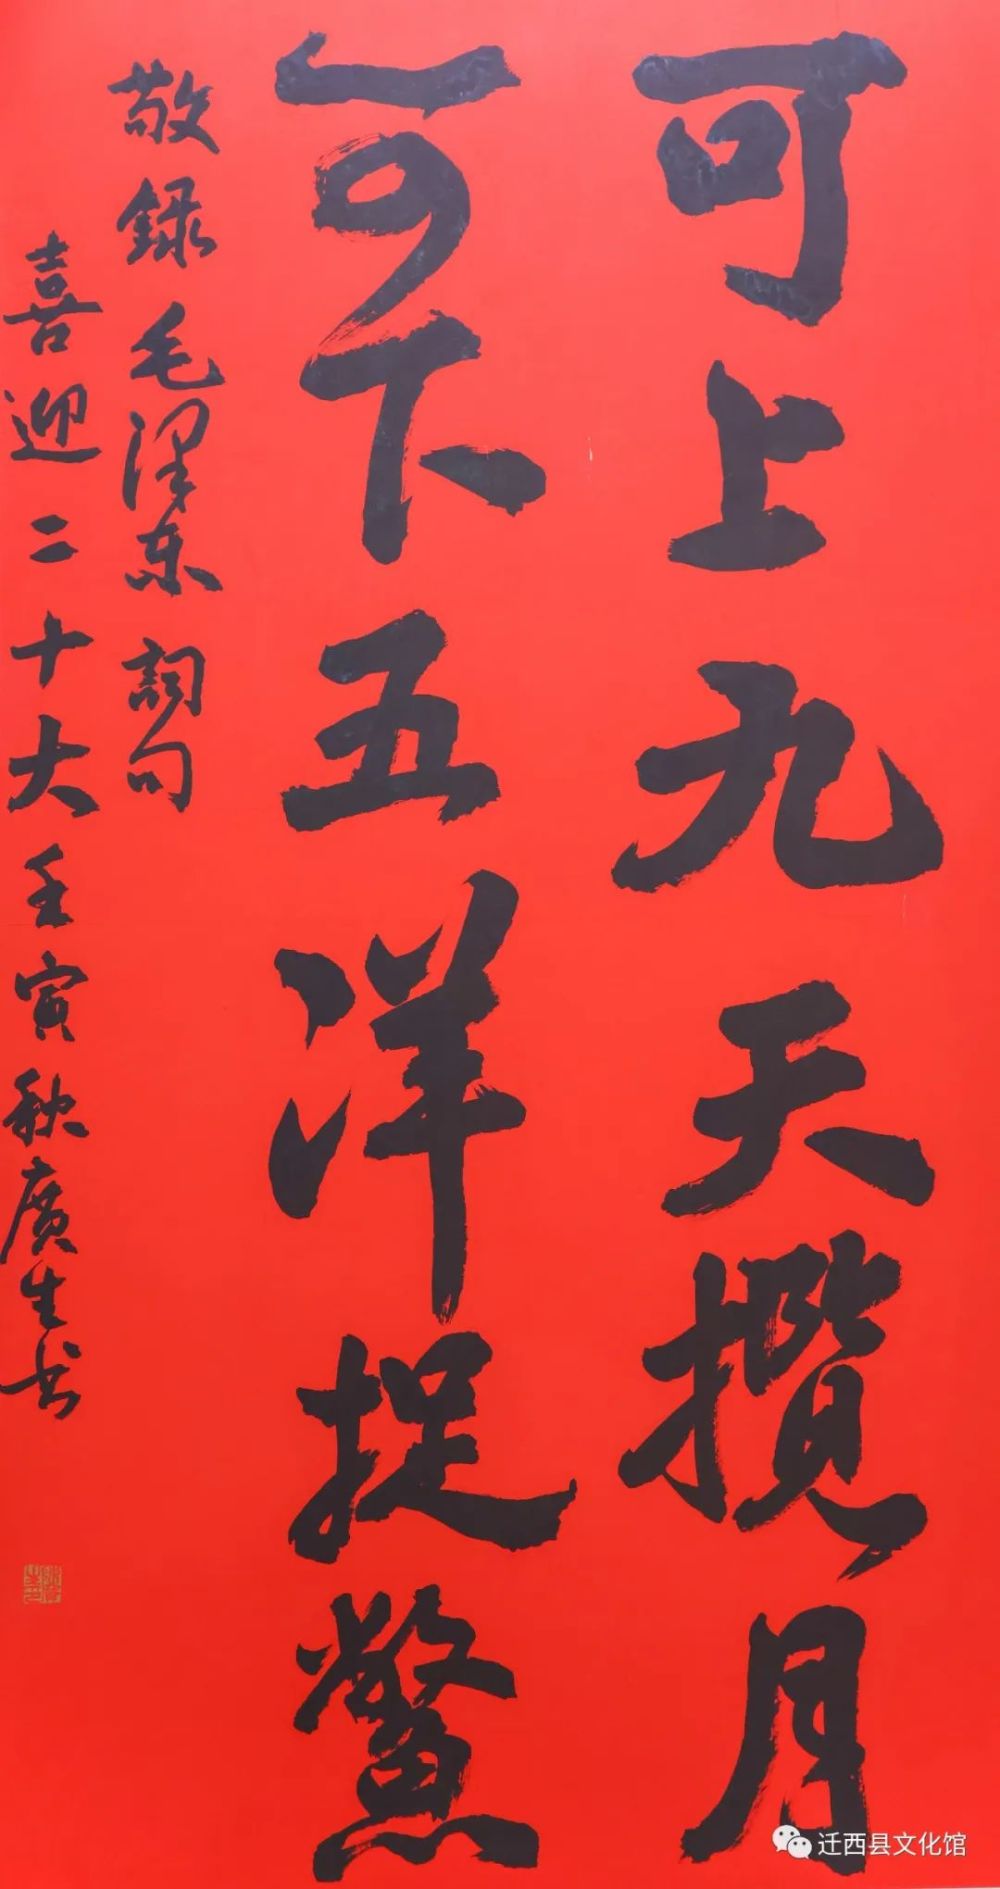 可上九天攬月
可下五洋捉鱉
敬録毛澤东詞句
喜迎二十大壬寅秋廣生书
迁西县文化馆